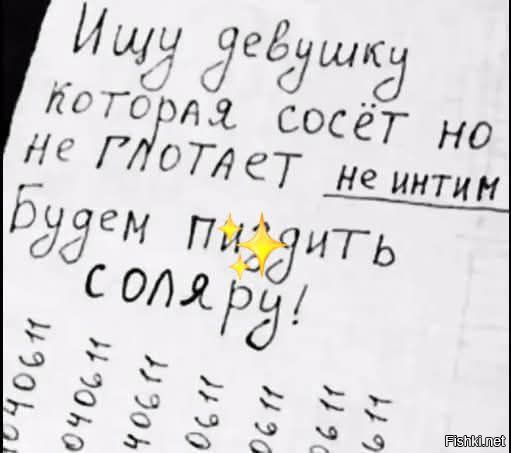 Ищу девушку
которая сосёт но
не глотает не интим
Будем пиздить
соляру!
040611
040611
40611
0611
0611
0611
611
Fishki.net